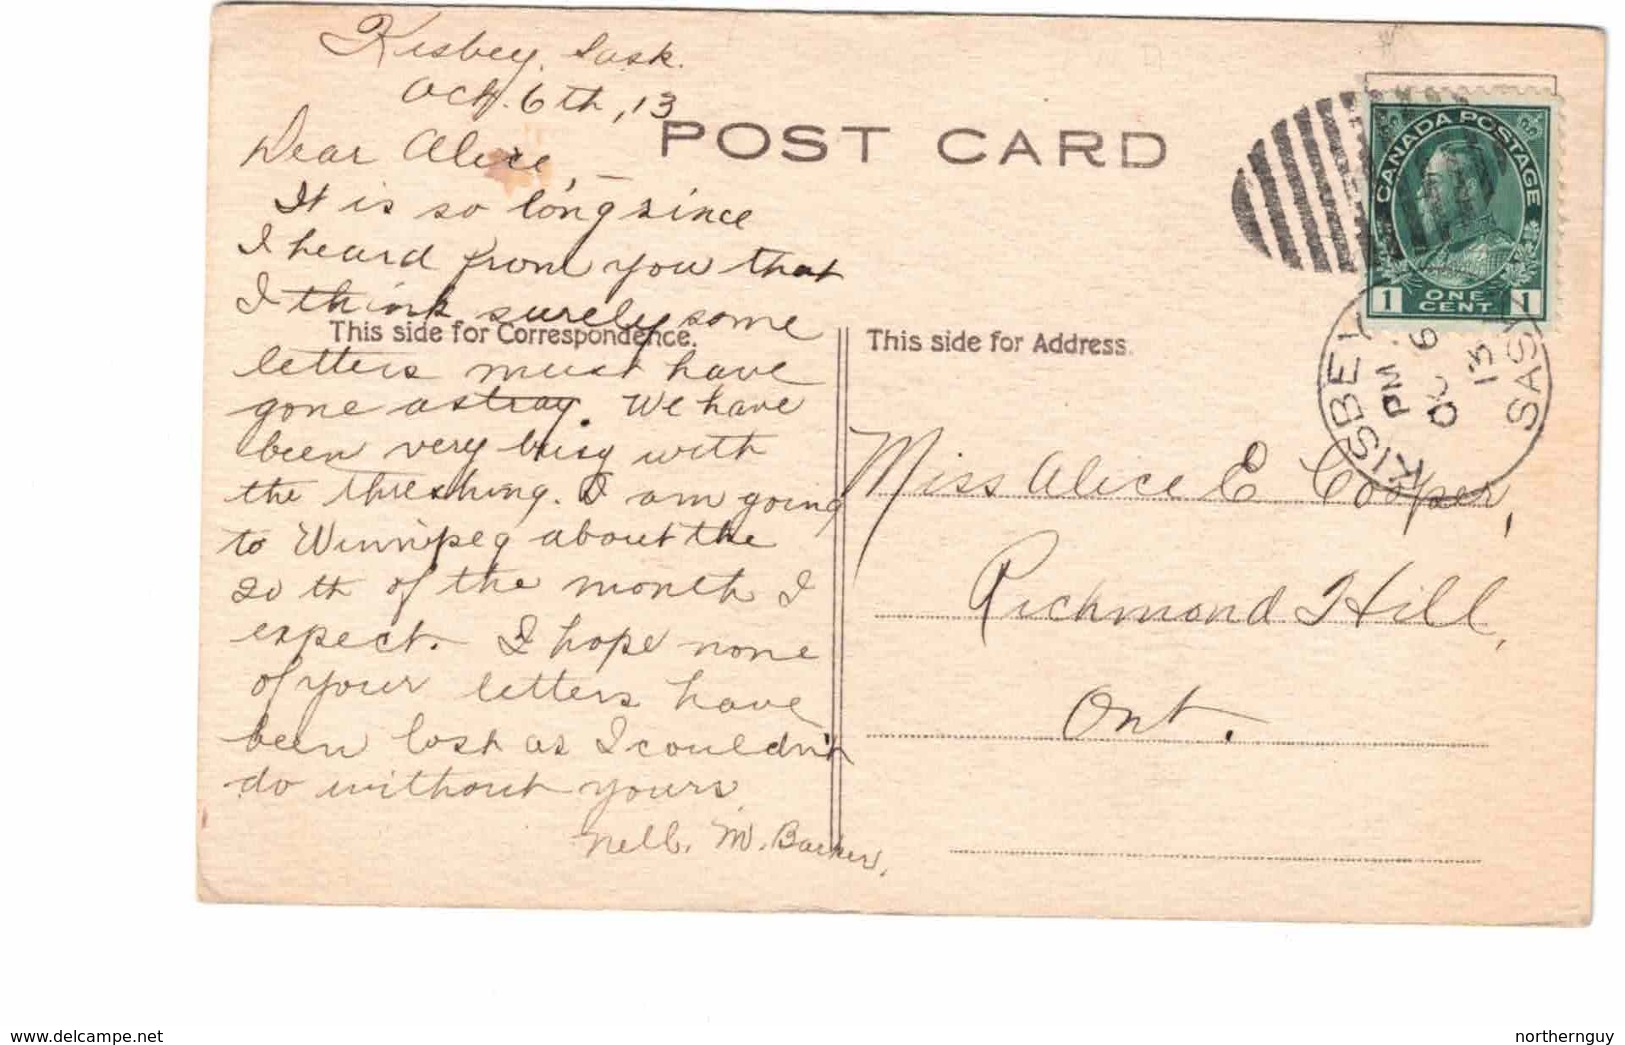 Kisbey, Sask.
Oct. 6th, 13
Dear Alice,
It is so long since
I heard from you that
I think surely some
letters must have
gone astray. We have
been very busy with
the threshing. I am going
to Winnipeg about the
20th of the month I
expect. I hope none
of your letters have
been lost as I couldn't
do without yours
Nell. M. Barker.
POST CARD
This side for Correspondence.
This side for Address.
CANADA POSTAGE
1 ONE CENT 1
KISBEY
PM
OC 6
13
SASK
Miss Alice E Cooper,
Richmond Hill,
Ont.
www.delcampe.net
northernguy